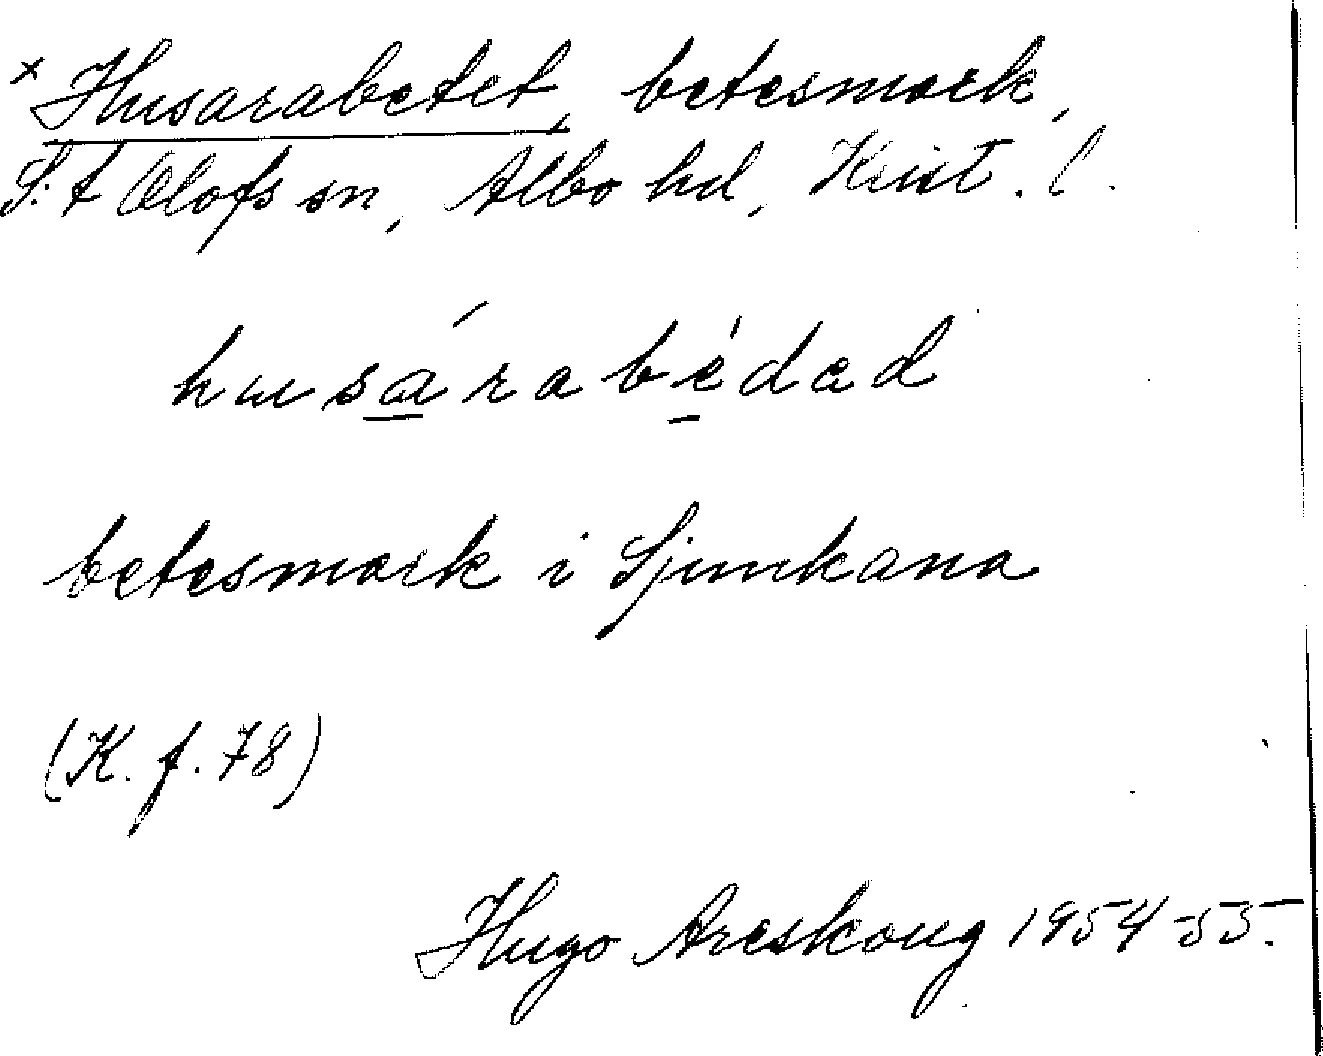 × Husarabetet, betesmark,
S:t Olofs sn, Albo hd, Krist. l.
husárabédad
betesmark i Sjunkana
(K. f. 78)
Hugo Areskoug 1954-55.